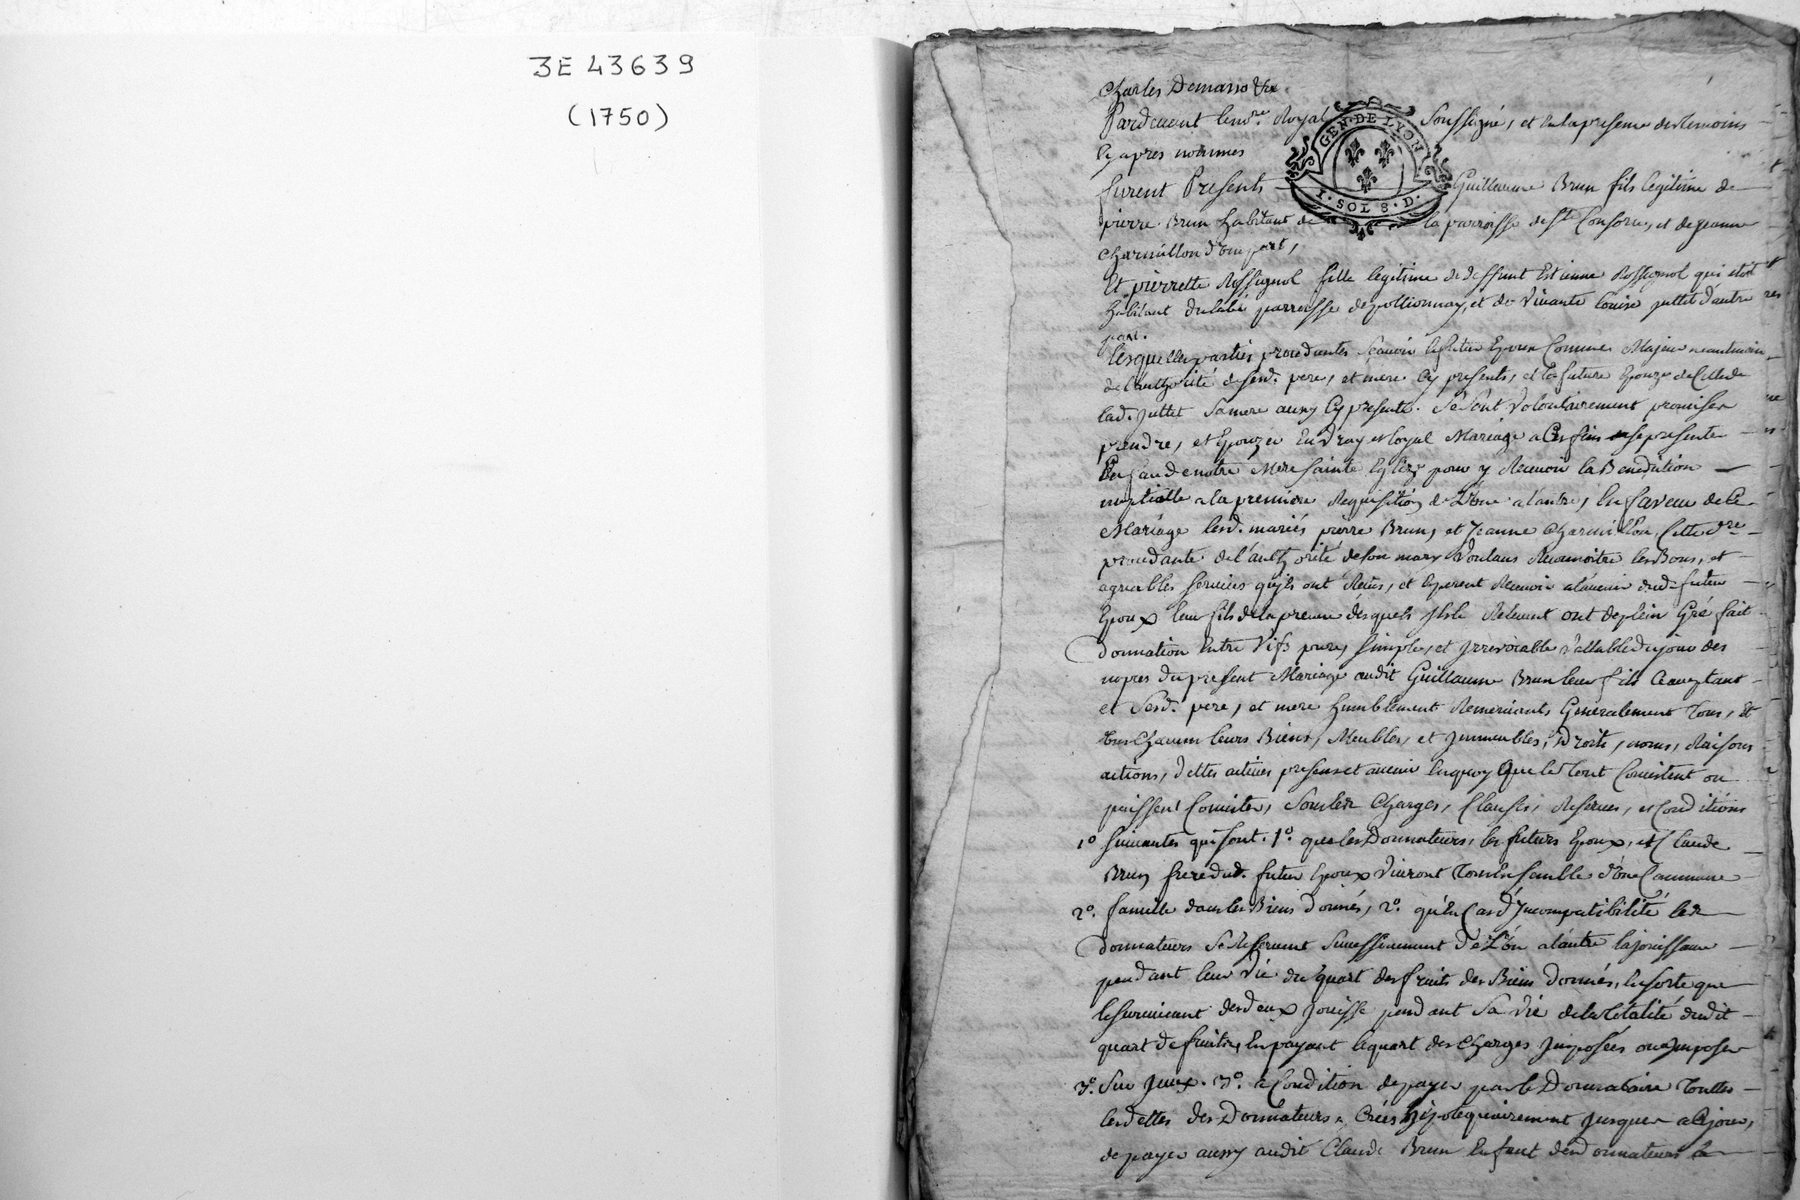 3E 43639
(1750)
Charles Demans &a
Pardevant le nre. Royal Soussigné, et En la presence des temoins
Cy apres nommes
GEN. DE LYON
I. SOL 8. D.
furent Presents Guillaume Brun fils legitime de
pierre Brun habitant de la parroisse de st. Consorce, et de jeanne
Charmillon d'une part,
Et pierrette Rossignol fille legitime de deffunt Estienne Rossignol qui etoit
habitant de parroisse de pollionnay, et de Vivante Louise juttet d'autre
part.
lesquelles parties procedantes scavoir le futur Epoux Comme Majeur neantmoins
de l'authorité de sesd. pere, et mere Cy presents, et la future Epouze de Celle de
lad. juttet sa mere aussy Cy presente. se sont Volontairement promises
prendre, et Epouzer En Vray et loyal Mariage a Ces fins se presenter
En face de notre Mere sainte Eglize pour y Recevoir la Benediction
nuptialle a la premiere Requisition de L'une a l'autre, En faveur de Ce
Mariage lesd. mariés pierre Brun, et Jeanne Charmillon, Cette dre.
procedante de l'authorité de son mary Voulans Reconnoitre les Bons, et
agreables services qu'ils ont Recus, et Esperent Recevoir a l'avenir dud. futur
Epoux leur fils de la preuve desquels Ils le Relevent ont de plein Gré fait
donnation Entre Vifs pure, simple, et Irrevocable Vallable du jour des
nopces du present Mariage audit Guillaume Brun leur fils Acceptant
et sesd. pere, et mere humblement Remerciant, Generalement Tous, et
Uns Chacuns leurs Biens, Meubles, et Immeubles, Droits, noms, Raisons
actions, dettes actives presens et avenir En quoy que le Tout Consistent ou
puissent Consister, sous les Charges, Clauses, Reserves, et Conditions
1o suivantes qui sont. 1o. que les Donnateurs, les futurs Epoux, et Claude
Brun frere dud. futur Epoux Vivront Tous Ensemble d'une Commune
2o. famille dans les Biens donnés, 2o. qu'En Cas d'Incompatibilité les
donnateurs se Reservent successivement de L'un a l'autre la jouissance
pendant leur Vie du quart des fruits des Biens donnés, En sorte que
le survivant des deux jouisse pendant sa Vie de la totalité dudit
quart de fruits, En payant le quart des Charges Imposées ou a Imposer
3o. sur Iceux. 3o. a Condition de payer par le Donnataire Touttes
les dettes des Donnateurs Créés hipotequairement jusques a Ce jour,
de payer aussy audit Claude Brun Enfant des donnateurs la